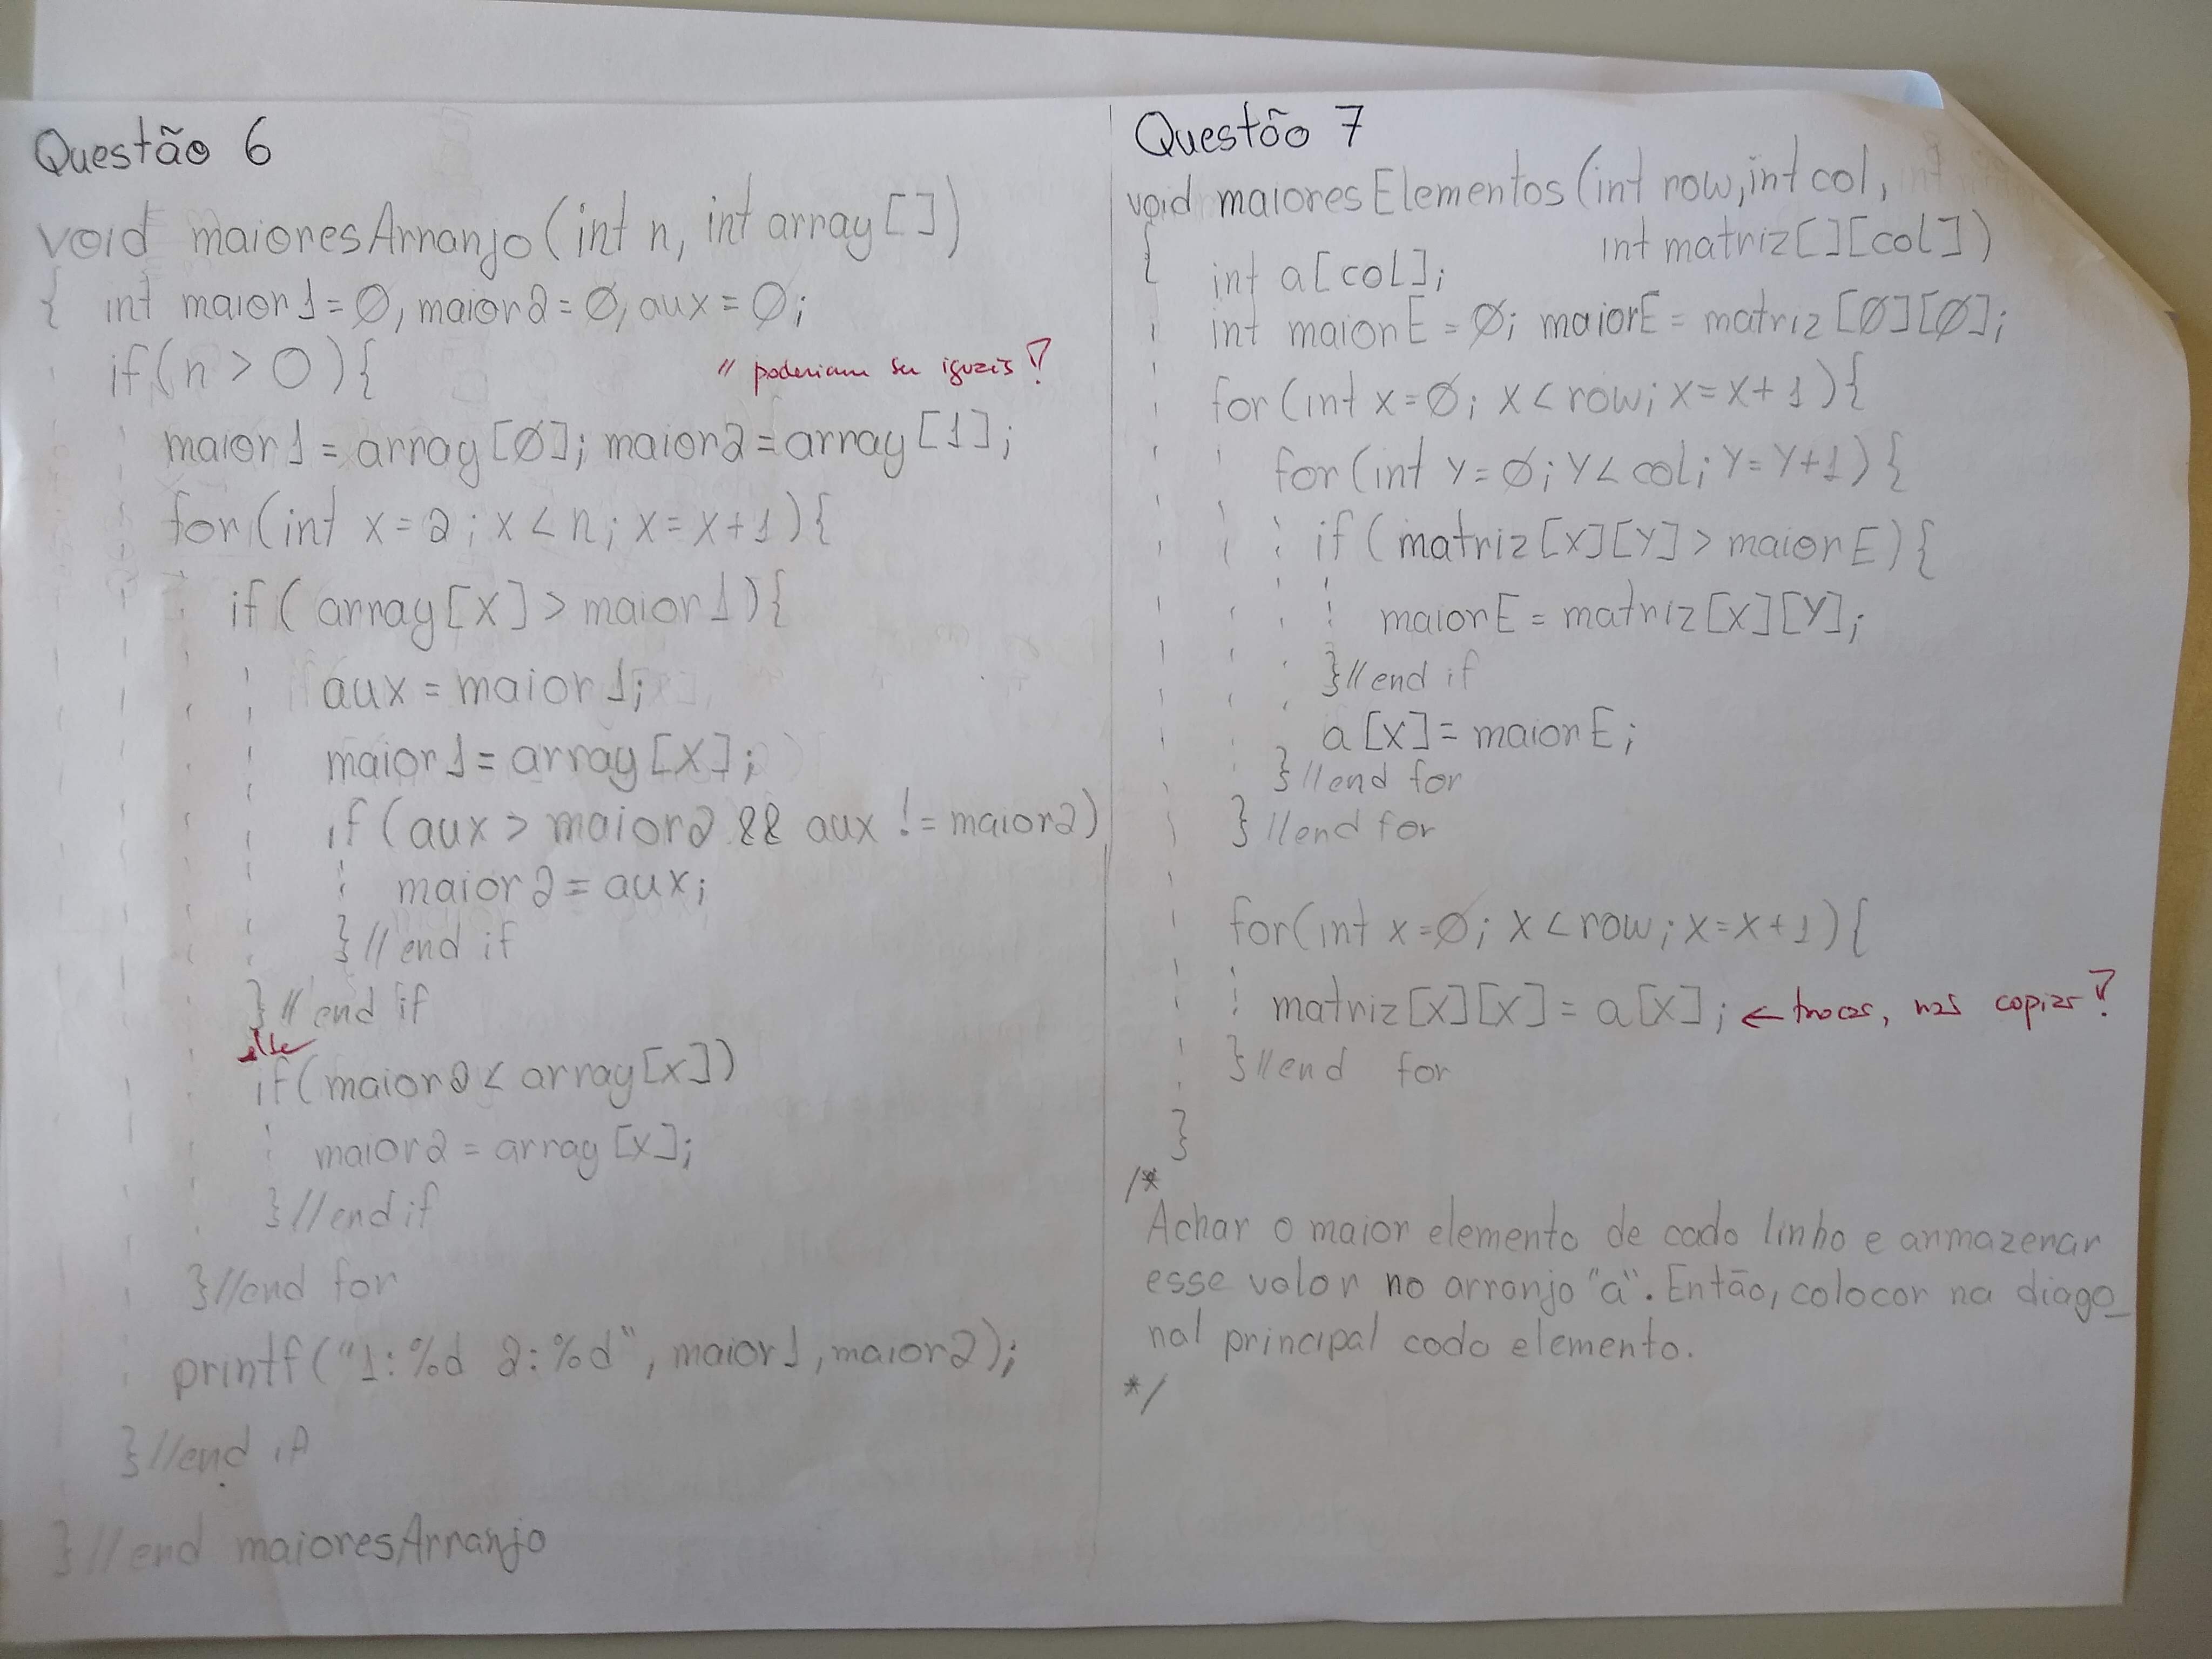 Questão 6
void maioresArranjo(int n, int array[])
{ int maior1=0, maior2=0, aux=0;
if(n > 0){
// poderiam ser iguais!
maior1 = array[0]; maior2=array[1];
for(int x=2; x<n; x=x+1){
if( array[x] > maior1){
aux = maior1;
maior1 = array[x];
if (aux > maior2 && aux != maior2)
maior2 = aux;
}//end if
}//end if
else
if(maior2 < array[x])
maior2 = array[x];
}//end if
}//end for
printf("1:%d 2:%d", maior1, maior2);
}//end if
}//end maioresArranjo
Questão 7
void maioresElementos(int row, int col,
int matriz[][col])
{ int a[col];
int maiorE = 0; maiorE = matriz[0][0];
for(int x=0; x<row; x=x+1){
for(int y=0; y<col; y=y+1){
if( matriz[x][y] > maiorE){
maiorE = matriz[x][y];
}//end if
a[x] = maiorE;
}//end for
}//end for
for(int x=0; x<row; x=x+1){
matriz[x][x] = a[x]; ← trocar, não copiar!
}//end for
}
/*
Achar o maior elemento de cada linha e armazenar
esse valor no arranjo "a". Então, colocar na diago_
nal principal cada elemento.
*/